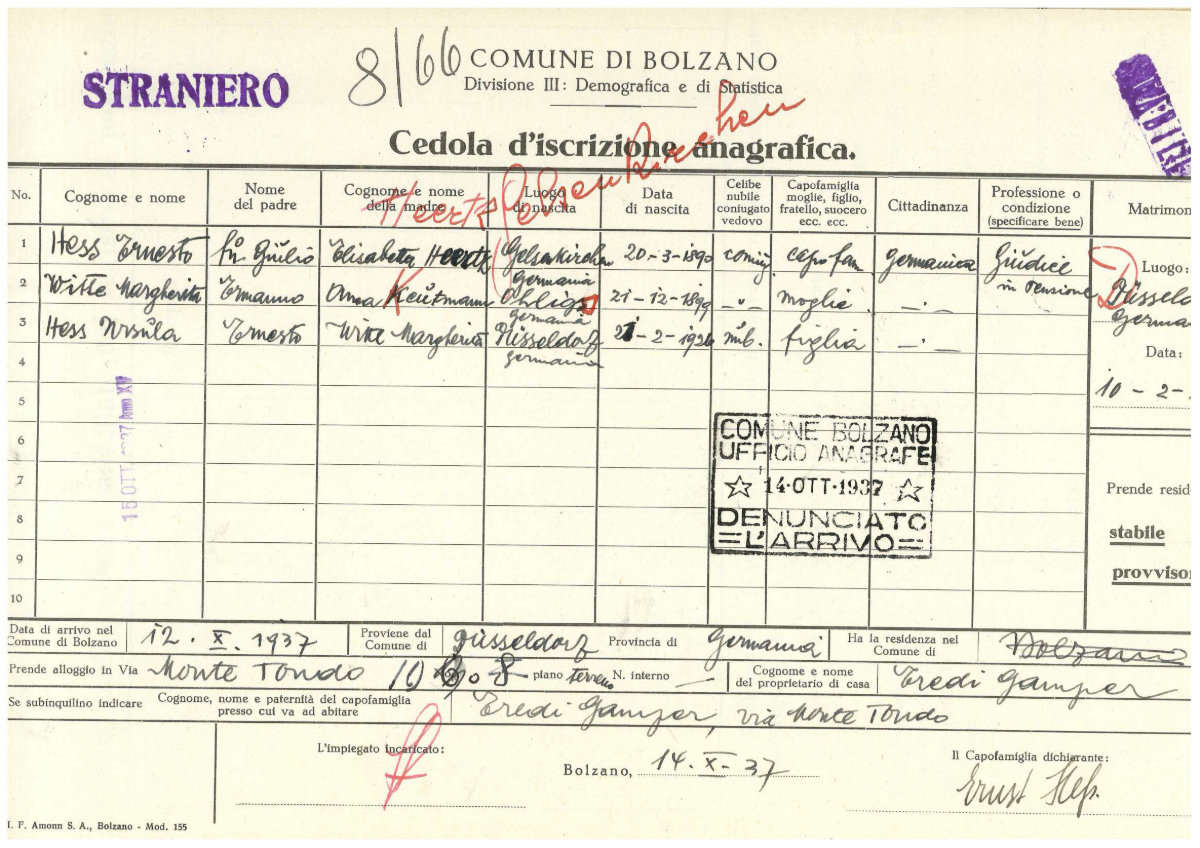 STRANIERO
8/66
COMUNE DI BOLZANO
Divisione III: Demografica e di Statistica
Cedola d'iscrizione anagrafica.
Heertz Gelsenkirchen
No. Cognome e nome Nome del padre Cognome e nome della madre Luogo di nascita Data di nascita Celibe nubile coniugato vedovo Capofamiglia moglie, figlio, fratello, suocero ecc. ecc. Cittadinanza Professione o condizione (specificare bene) Matrimon
1 Hess Ernesto fu Giulio Elisabetta Heertz Gelsenkirchen Germania 20-3-1890 coniug capofam. germanica Giudice in Pensione
Luogo:
2 Witte Margherita Ermanno Anna Keutmann Ohligs Germania 21-12-1899 -"- moglie -"-
Düsseldo
Germa
3 Hess Ursula Ernesto Witte Margherita Düsseldorf Germania 21-2-1926 nub. figlia -"-
Data:
4
10-2-
5
6
7
8
9
10
16 OTT 1937 Anno XV
COMUNE BOLZANO
UFFICIO ANAGRAFE
14·OTT·1937
DENUNCIATO
=L'ARRIVO=
Prende resid
stabile
provvisor
Data di arrivo nel Comune di Bolzano 12. X. 1937 Proviene dal Comune di Düsseldorf Provincia di Germania Ha la residenza nel Comune di Bolzano
Prende alloggio in Via Monte Tondo 10 8 piano terreno N. interno — Cognome e nome del proprietario di casa Eredi Gamper
Se subinquilino indicare Cognome, nome e paternità del capofamiglia presso cui va ad abitare Eredi Gamper, via Monte Tondo
L'impiegato incaricato:
Bolzano, 14. X- 37
Il Capofamiglia dichiarante:
Ernst Heß.
I. F. Amonn S. A., Bolzano - Mod. 155